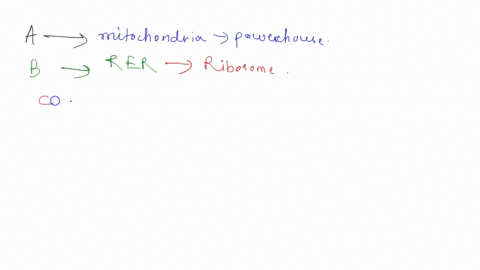 A → mitochondria → powerhouse.
B → RER → Ribosome.
CO.